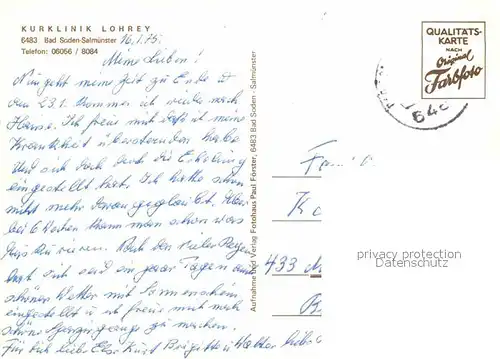 KURKLINIK LOHREY
6483 Bad Soden-Salmünster
Telefon: 06056 / 8084
16.1.75.
Meine Lieben!
Nun geht meine Zeit zu Ende
den 23.1. komme ich wieder nach
Hause. Ich freue mich daß ich meine
Krankheit überstanden habe
Und sich doch die Erholung
eingestellt hat. Ich hatte schon
nicht mehr daran geglaubt. Aber
bei 6 Wochen kann man schon was
. Nach den vielen Regen
hat sich seid ein paar Tagen
schönes Wetter mit Sonnenschein
eingestellt u. ich freue mich noch
schöne Spaziergänge zu machen.
Für Euch Liebe Else Kurt Brigitte u. Walter liebe
Aufnahme und Verlag Fotohaus Paul Förster, 6483 Bad Soden - Salmünster
QUALITÄTS-
KARTE
NACH
Original
Farbfoto
648
Fam
433
privacy protection
Datenschutz